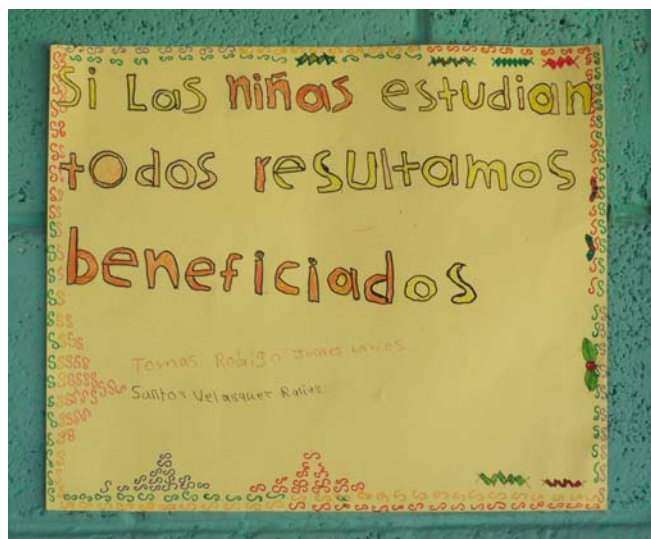 Si Las niñas estudian
todos resultamos
beneficiados
Tomas Rodrigo Juares
Santos Velasquer